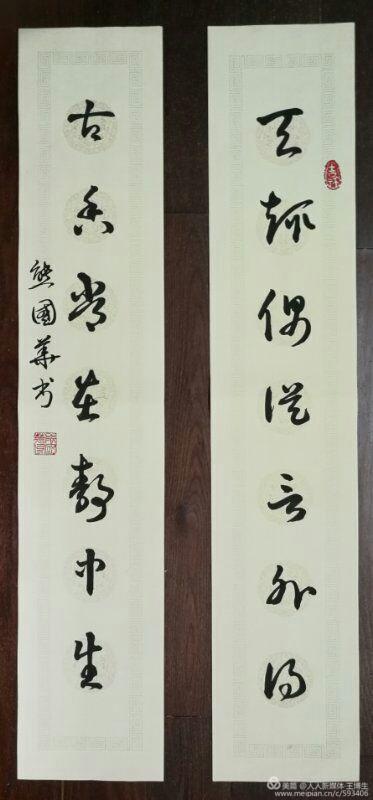 天趣偶從言外得
古香常在靜中生
熊國華书
美篇 @人人新媒体·王博生
www.meipian.cn/c/593406